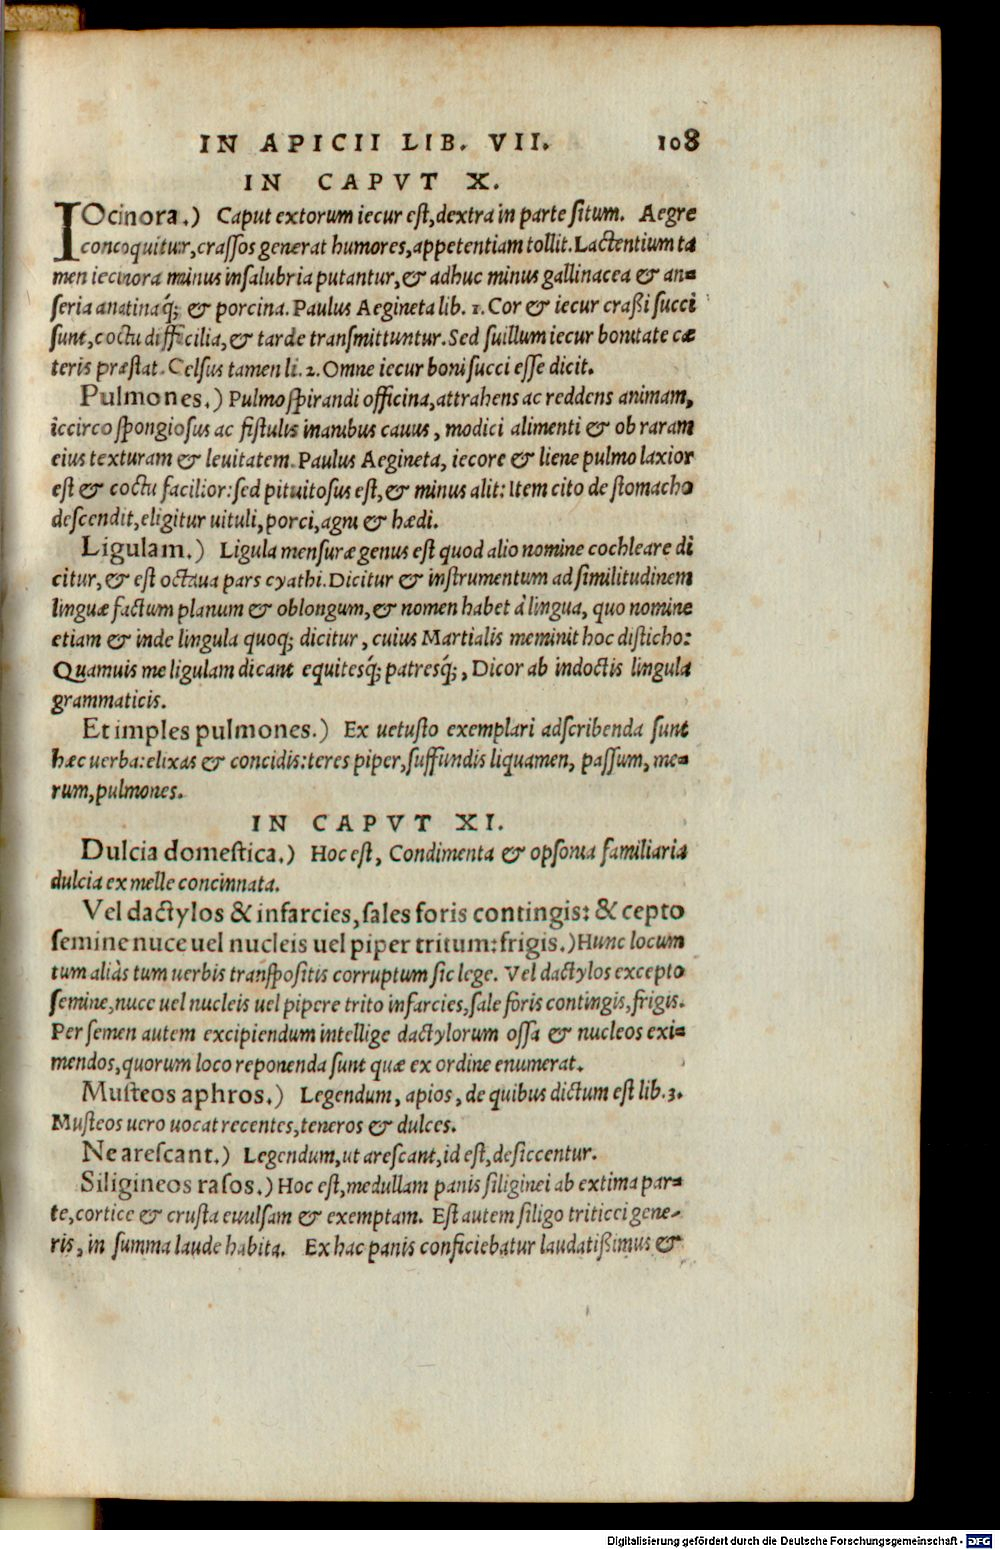 IN APICII LIB. VII. 108
IN CAPVT X.
IOcinora.) Caput extorum iecur est, dextra in parte situm. Aegre
concoquitur, crassos generat humores, appetentiam tollit. Lactentium ta
men iecinora minus insalubria putantur, & adhuc minus gallinacea & an=
seria anatinaq́; & porcina. Paulus Aegineta lib. 1. Cor & iecur craßi succi
sunt, coctu difficilia, & tarde transmittuntur. Sed suillum iecur bonitate cæ
teris præstat. Celsus tamen li. 2. Omne iecur boni succi esse dicit.
Pulmones.) Pulmo spirandi officina, attrahens ac reddens animam,
iccirco spongiosus ac fistulis inanibus cauus, modici alimenti & ob raram
eius texturam & leuitatem. Paulus Aegineta, iecore & liene pulmo laxior
est & coctu facilior: sed pituitosus est, & minus alit: Item cito de stomacho
descendit, eligitur uituli, porci, agni & hædi.
Ligulam.) Ligula mensuræ genus est quod alio nomine cochleare di
citur, & est octaua pars cyathi. Dicitur & instrumentum ad similitudinem
linguæ factum planum & oblongum, & nomen habet à lingua, quo nomine
etiam & inde lingula quoq; dicitur, cuius Martialis meminit hoc disticho:
Quamuis me ligulam dicant equitesq́; patresq́;, Dicor ab indoctis lingula
grammaticis.
Et imples pulmones.) Ex uetusto exemplari adscribenda sunt
hæc uerba: elixas & concidis: teres piper, suffundis liquamen, passum, me=
rum, pulmones.
IN CAPVT XI.
Dulcia domestica.) Hoc est, Condimenta & opsonia familiaria
dulcia ex melle concinnata.
Vel dactylos & infarcies, sales foris contingis: & cepto
semine nuce uel nucleis uel piper tritum: frigis.) Hunc locum
tum aliàs tum uerbis transpositis corruptum sic lege. Vel dactylos excepto
semine, nuce uel nucleis uel pipere trito infarcies, sale foris contingis, frigis.
Per semen autem excipiendum intellige dactylorum ossa & nucleos exi=
mendos, quorum loco reponenda sunt quæ ex ordine enumerat.
Musteos aphros.) Legendum, apios, de quibus dictum est lib. 3.
Musteos uero uocat recentes, teneros & dulces.
Ne arescant.) Legendum, ut arescant, id est, desiccentur.
Siligineos rasos.) Hoc est, medullam panis siliginei ab extima par=
te, cortice & crusta euulsam & exemptam. Est autem siligo triticci gene=
ris, in summa laude habita. Ex hac panis conficiebatur laudatißimus &
Digitalisierung gefördert durch die Deutsche Forschungsgemeinschaft - DFG